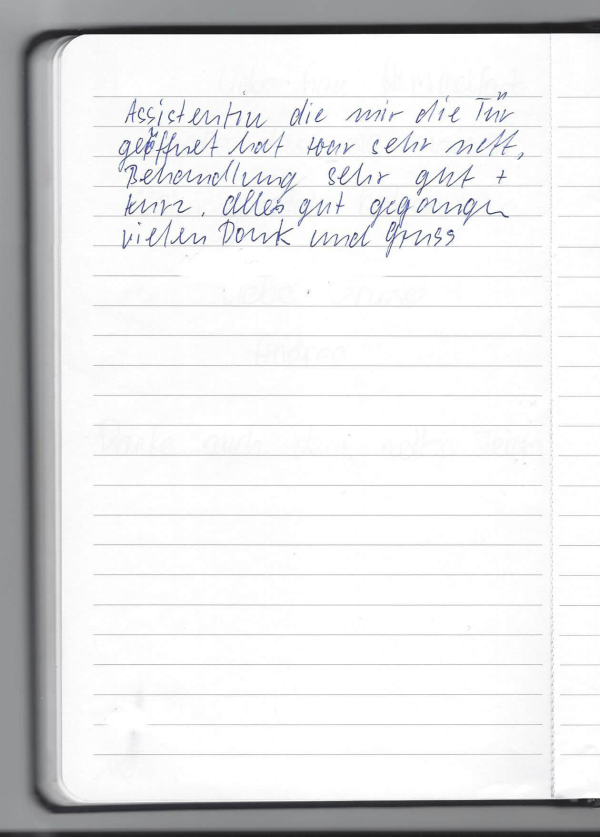 Assistentin die mir die Tür
geöffnet hat war sehr nett,
Behandlung sehr gut +
kurz. Alles gut gegangen
vielen Dank und Gruss